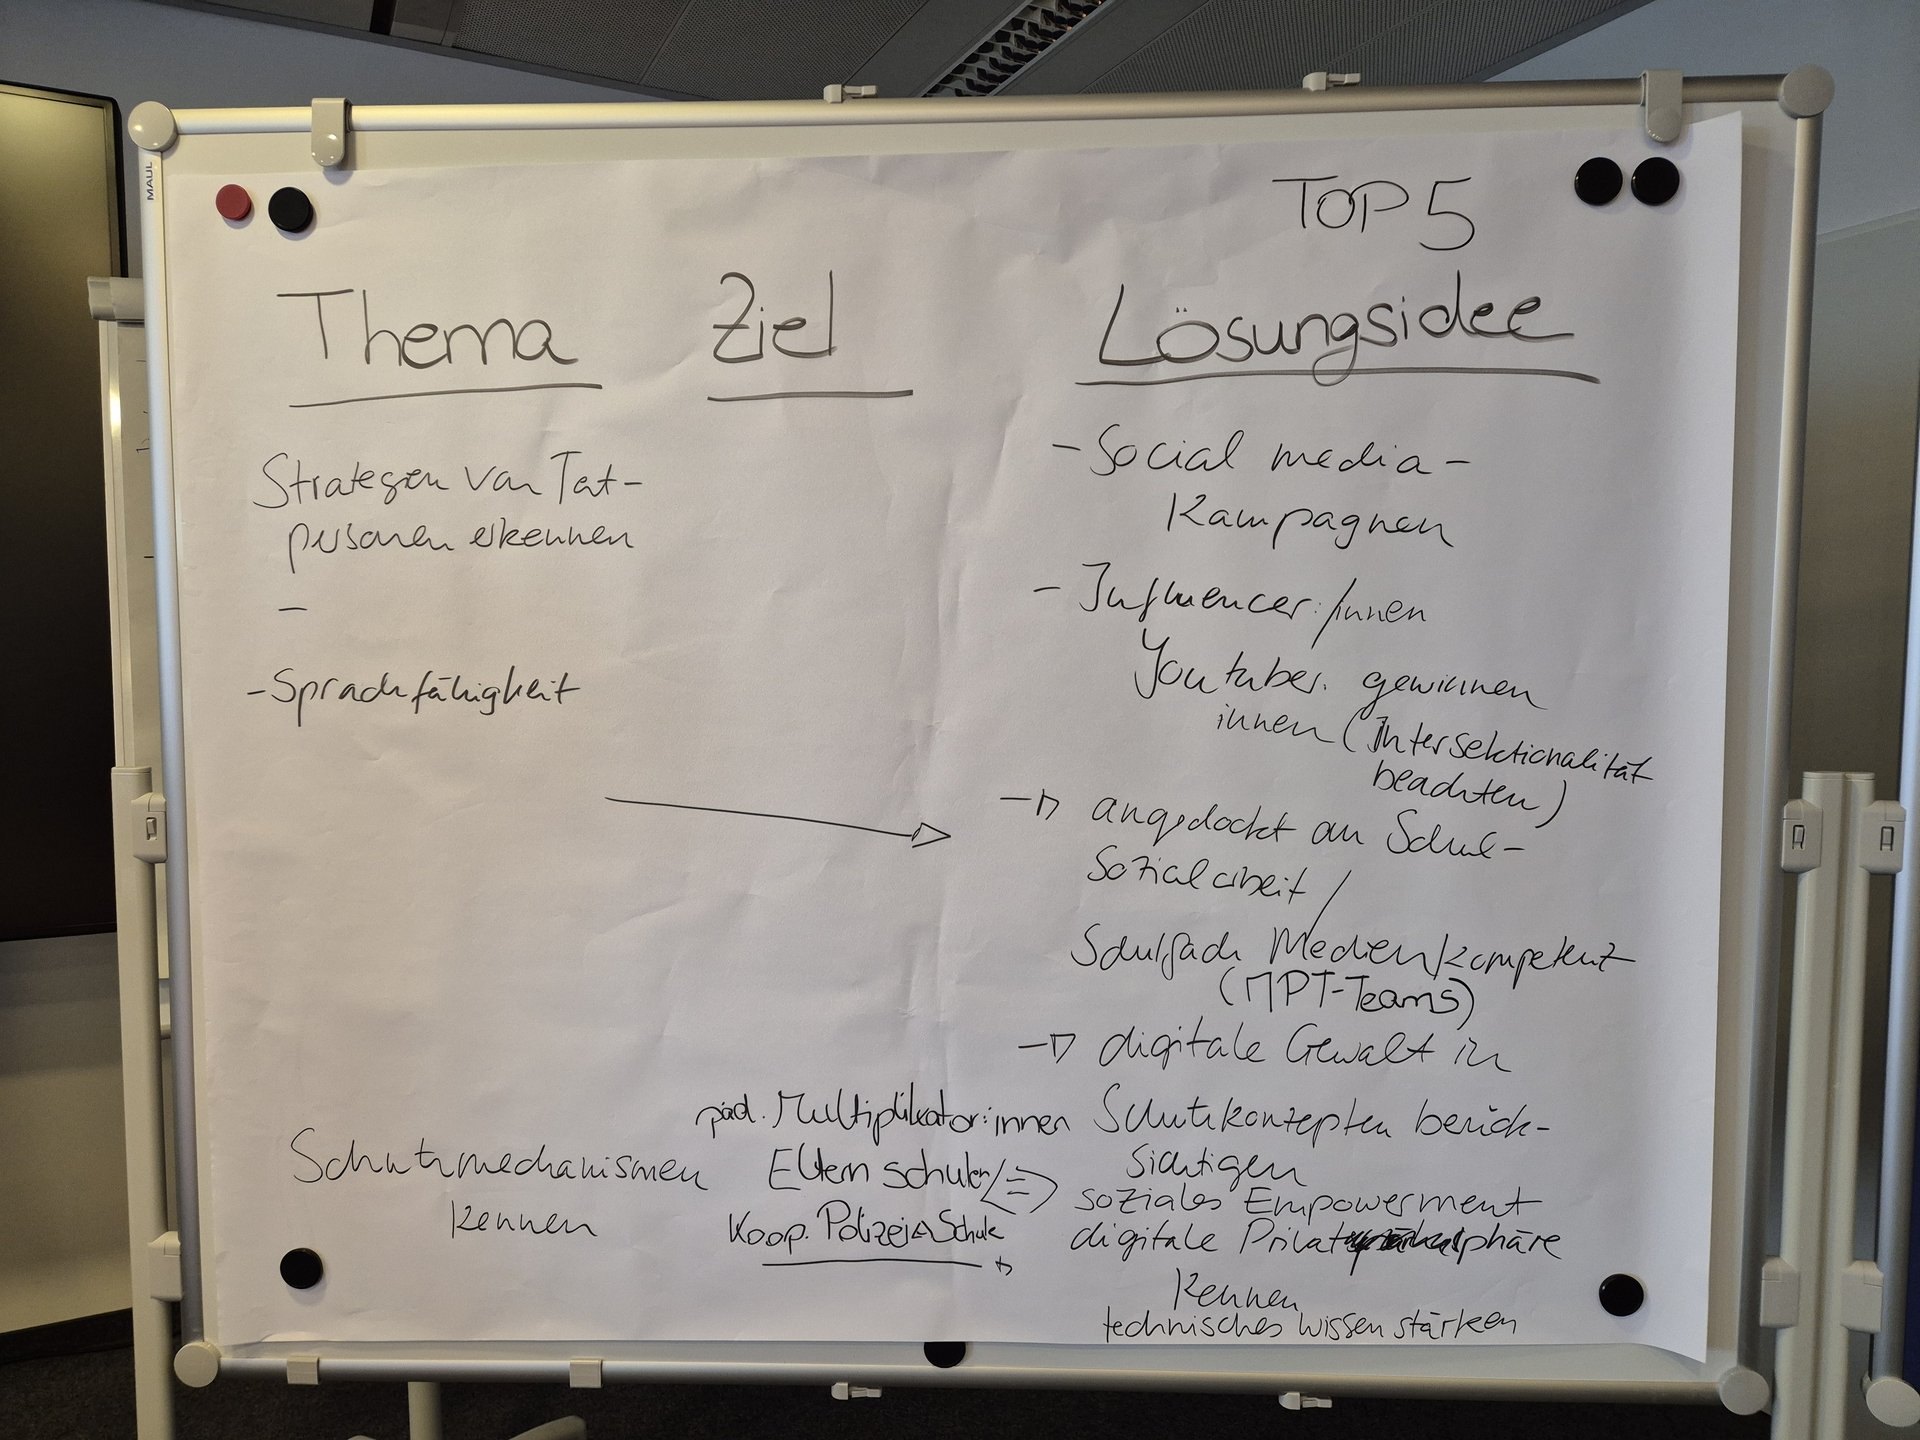 MAUL
TOP 5
Thema Ziel Lösungsidee
Strategien von Tat-
personen erkennen
-
- Sprachfähigkeit
- Social media -
Kampagnen
- Influencer:/innen
Youtuber. gewinnen
innen (Intersektionalität
beachten)
→ angedockt an Schul-
sozialarbeit /
Schulfach Medienkompetenz
(MPT-Teams)
→ digitale Gewalt in
Schutzkonzepten berück-
sichtigen
Schutzmechanismen
kennen
päd. Multiplikator:innen
Eltern schulen/ ⇒
Koop. Polizei Schule
→
soziales Empowerment
digitale Privatsphäre
kennen
technisches Wissen stärken